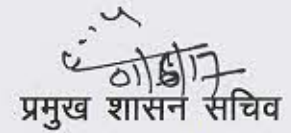 01/6/17
प्रमुख शासन सचिव